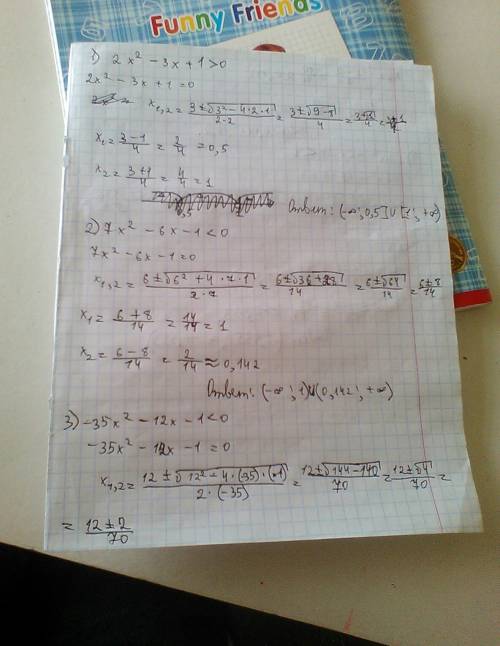 Funny Friends
1) 2x² - 3x + 1 > 0
2x² - 3x + 1 = 0
x₁,₂ = (3 ± √(3² - 4·2·1))/(2·2) = (3 ± √(9 - 8))/4 = (3 ± 1)/4
x₁ = (3 - 1)/4 = 2/4 = 0,5
x₂ = (3 + 1)/4 = 4/4 = 1
Ответ: (-∞; 0,5] ∪ [1; +∞)
2) 7x² - 6x - 1 < 0
7x² - 6x - 1 = 0
x₁,₂ = (6 ± √(6² + 4·7·1))/(2·7) = (6 ± √(36 + 28))/14 = (6 ± √64)/14 = (6 ± 8)/14
x₁ = (6 + 8)/14 = 14/14 = 1
x₂ = (6 - 8)/14 = 2/14 ≈ 0,142
Ответ: (-∞; 1) ∪ (0,142; +∞)
3) -35x² - 12x - 1 < 0
-35x² - 12x - 1 = 0
x₁,₂ = (12 ± √(12² - 4·(-35)·(-1)))/(2·(-35)) = (12 ± √(144 - 140))/70 = (12 ± √4)/70 =
= (12 ± 2)/70